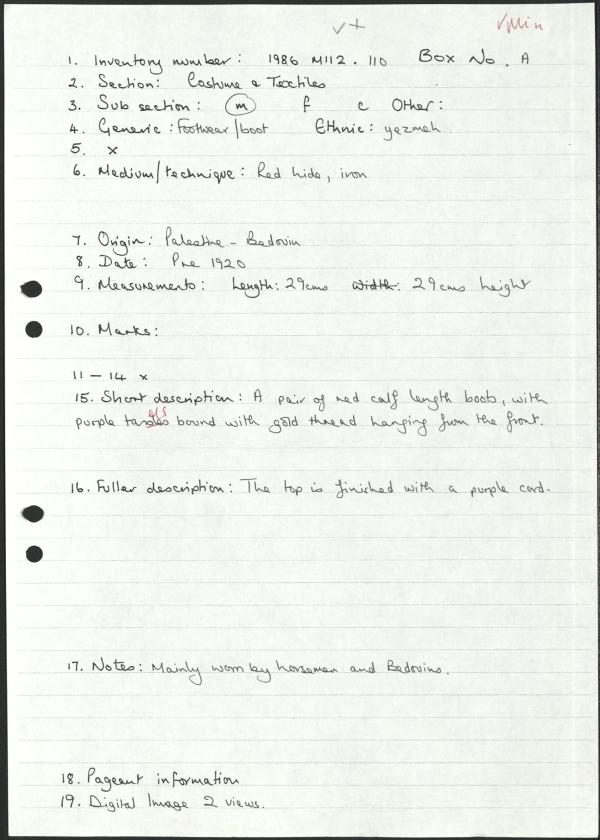 ✓+
✓Min
1. Inventory number: 1986 M112.110 Box No. A
2. Section: Costume & Textiles
3. Sub section: m f c Other:
4. Generic: Footwear/boot Ethnic: yezmeh
5. x
6. Medium/technique: Red hide, iron
7. Origin: Palestine - Bedouin
8. Date: Pre 1920
9. Measurements: Length: 29cms Width: 29cms height
10. Marks:
11 - 14 x
15. Short description: A pair of red calf length boots, with
purple tassels bound with gold thread hanging from the front.
16. Fuller description: The top is finished with a purple cord.
17. Notes: Mainly worn by horsemen and Bedouins.
18. Pageant information
19. Digital Image 2 views.